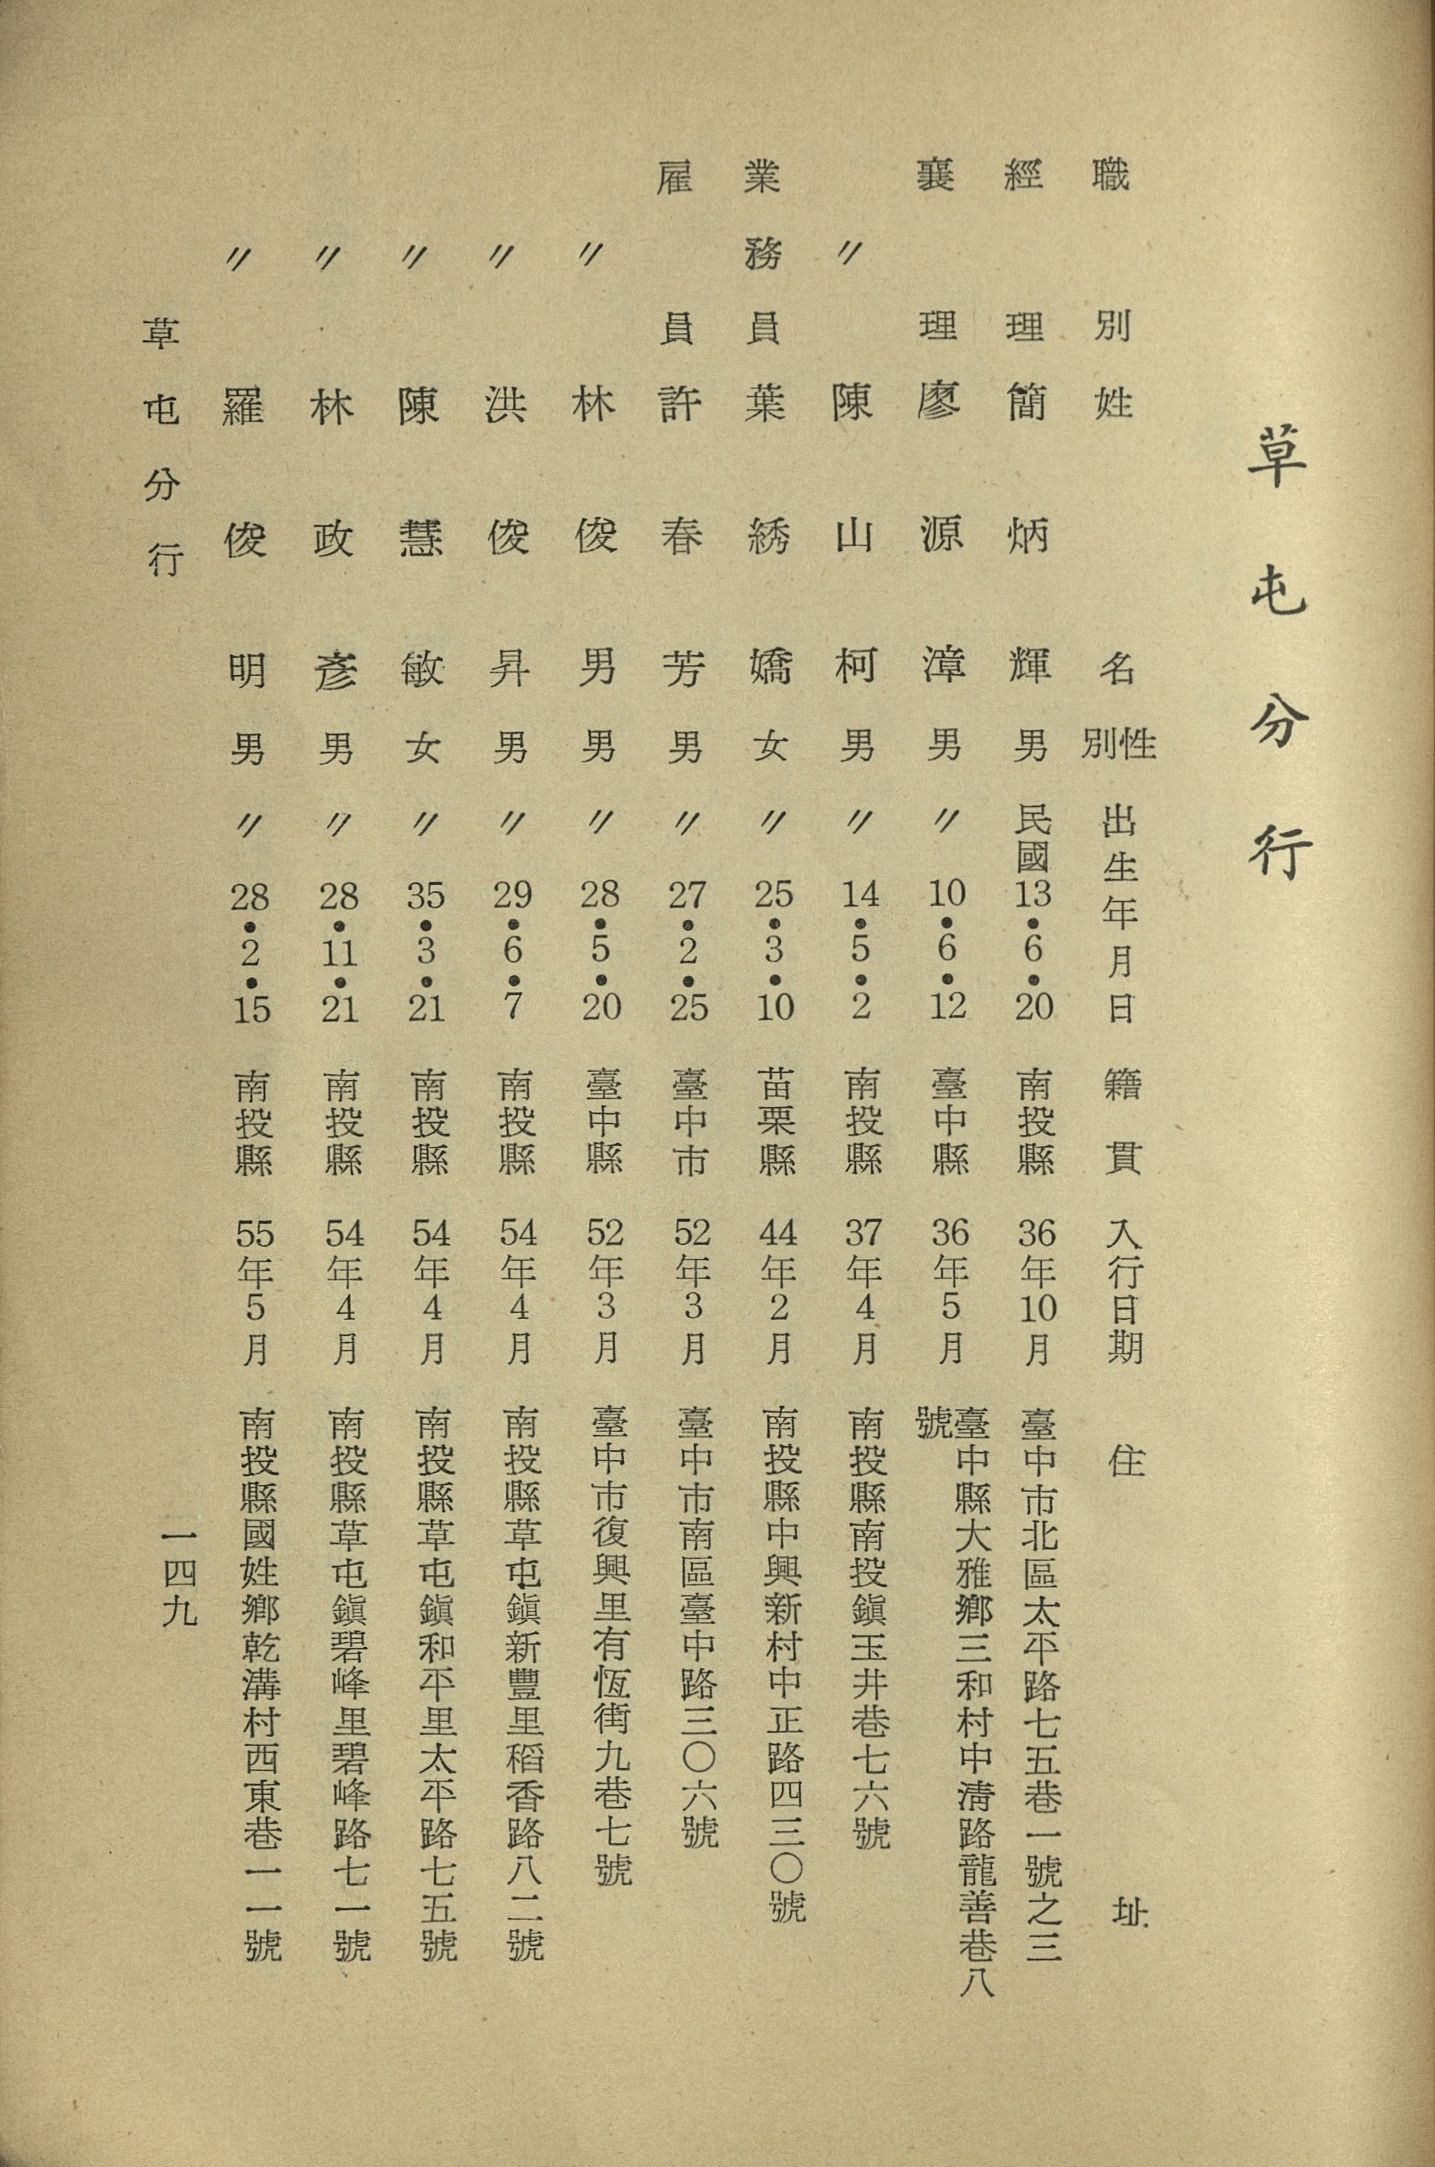 草屯分行
職別 姓名 性別 出生年月日 籍貫 入行日期 住址
經理 簡炳輝 男 民國13•6•20 南投縣 36年10月 臺中市北區太平路七五巷一號之三
襄理 廖源漳 男 〃10•6•12 臺中縣 36年5月 臺中縣大雅鄉三和村中淸路龍善巷八
號
〃 陳山柯 男 〃14•5•2 南投縣 37年4月 南投縣南投鎭玉井巷七六號
業務員 葉綉嬌 女 〃25•3•10 苗栗縣 44年2月 南投縣中興新村中正路四三〇號
雇員 許春芳 男 〃27•2•25 臺中市 52年3月 臺中市南區臺中路三〇六號
〃 林俊男 男 〃28•5•20 臺中縣 52年3月 臺中市復興里有恆街九巷七號
〃 洪俊昇 男 〃29•6•7 南投縣 54年4月 南投縣草屯鎭新豐里稻香路八二號
〃 陳慧敏 女 〃35•3•21 南投縣 54年4月 南投縣草屯鎭和平里太平路七五號
〃 林政彥 男 〃28•11•21 南投縣 54年4月 南投縣草屯鎭碧峰里碧峰路七一號
〃 羅俊明 男 〃28•2•15 南投縣 55年5月 南投縣國姓鄉乾溝村西東巷一一號
草屯分行 一四九